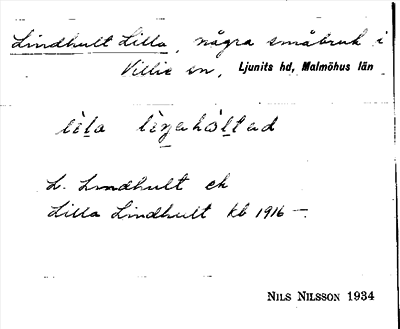 Lindhult Lilla, några småbruk i
Villie sn, Ljunits hd, Malmöhus län
L. Lindhult ek
Lilla Lindhult kb 1916 –.
NILS NILSSON 1934